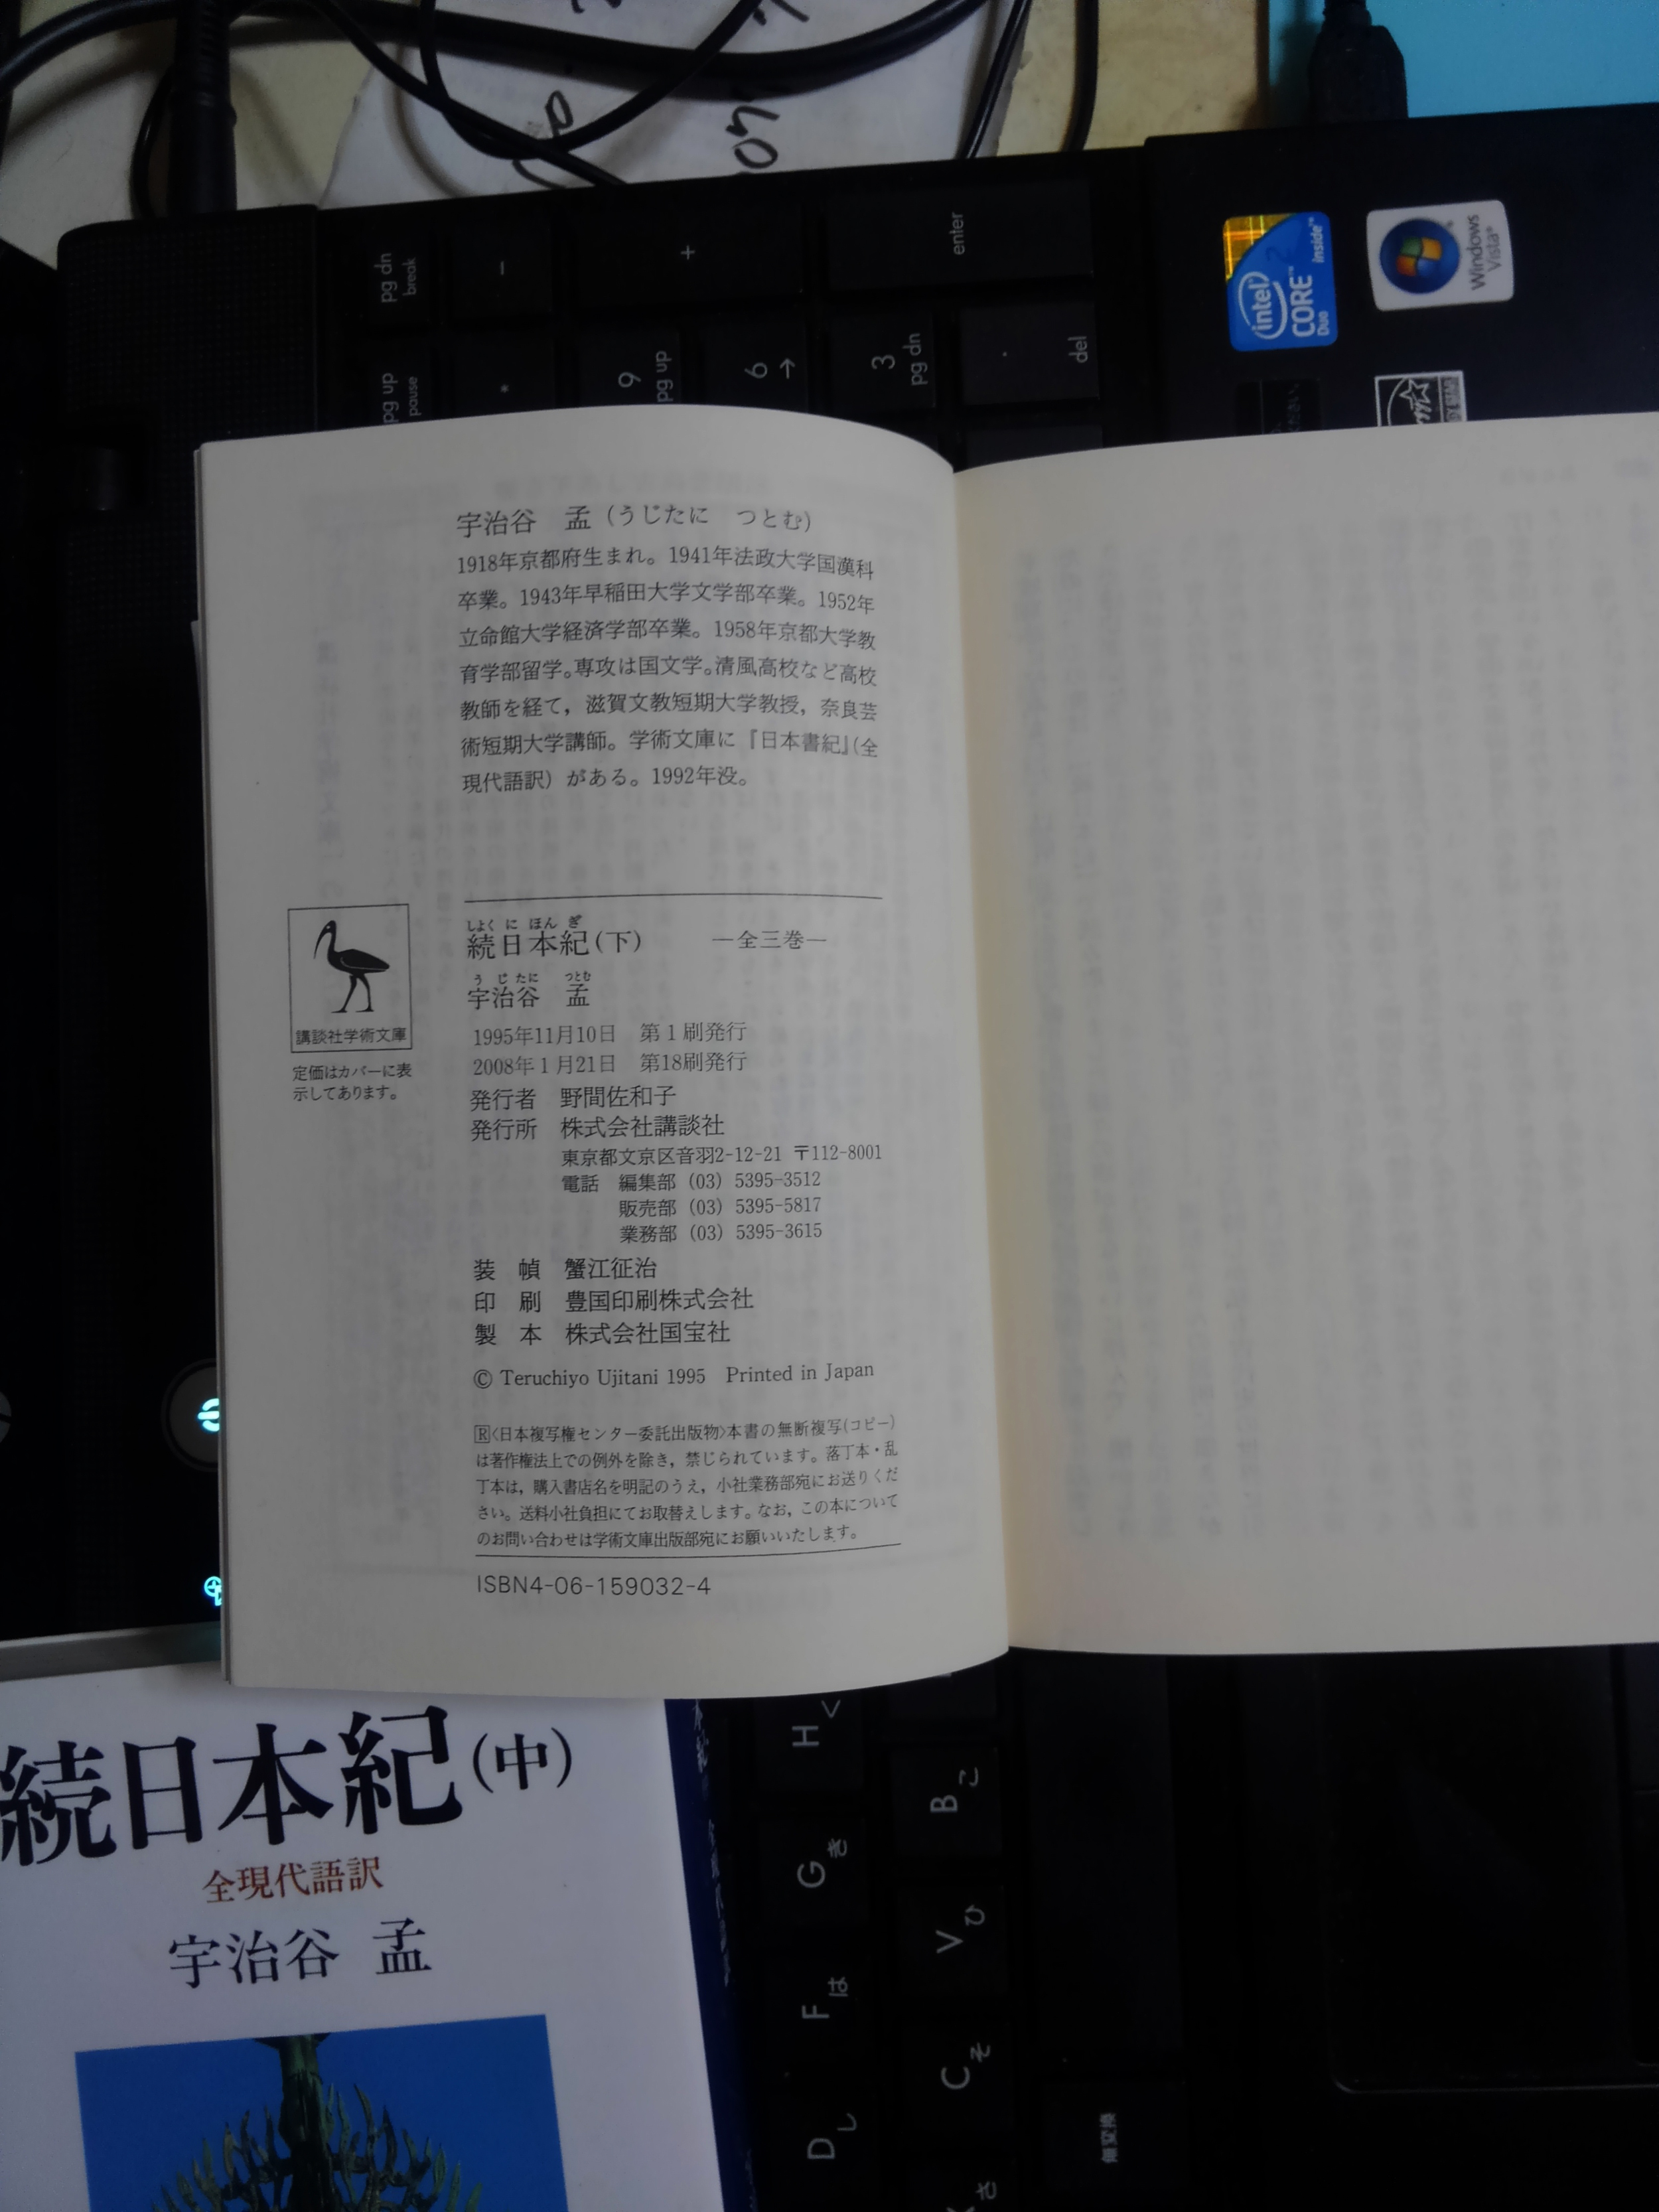 宇治谷　孟（うじたに　つとむ）
1918年京都府生まれ。1941年法政大学国漢科
卒業。1943年早稲田大学文学部卒業。1952年
立命館大学経済学部卒業。1958年京都大学教
育学部留学。専攻は国文学。清風高校など高校
教師を経て，滋賀文教短期大学教授，奈良芸
術短期大学講師。学術文庫に『日本書紀』（全
現代語訳）がある。1992年没。
しよく に ほん ぎ
続日本紀（下）　―全三巻―
う じ たに　つとむ
宇治谷　孟
1995年11月10日　第１刷発行
2008年１月21日　第18刷発行
発行者　野間佐和子
発行所　株式会社講談社
東京都文京区音羽2-12-21 〒112-8001
電話　編集部（03）5395-3512
販売部（03）5395-5817
業務部（03）5395-3615
装　幀　蟹江征治
印　刷　豊国印刷株式会社
製　本　株式会社国宝社
© Teruchiyo Ujitani 1995　Printed in Japan
Ⓡ〈日本複写権センター委託出版物〉本書の無断複写（コピー）
は著作権法上での例外を除き，禁じられています。落丁本・乱
丁本は，購入書店名を明記のうえ，小社業務部宛にお送りくだ
さい。送料小社負担にてお取替えします。なお，この本について
のお問い合わせは学術文庫出版部宛にお願いいたします。
ISBN4-06-159032-4
講談社学術文庫
定価はカバーに表
示してあります。
続日本紀（中）
全現代語訳
宇治谷 孟
pg dn
break
-
+
enter
pg up
pause
*
9
pg up
6
→
3
pg dn
.
del
intel
CORE 2
Duo
inside™
Windows
Vista
H く
G き
F は
D し
B こ
V ひ
C そ
さ
無変換